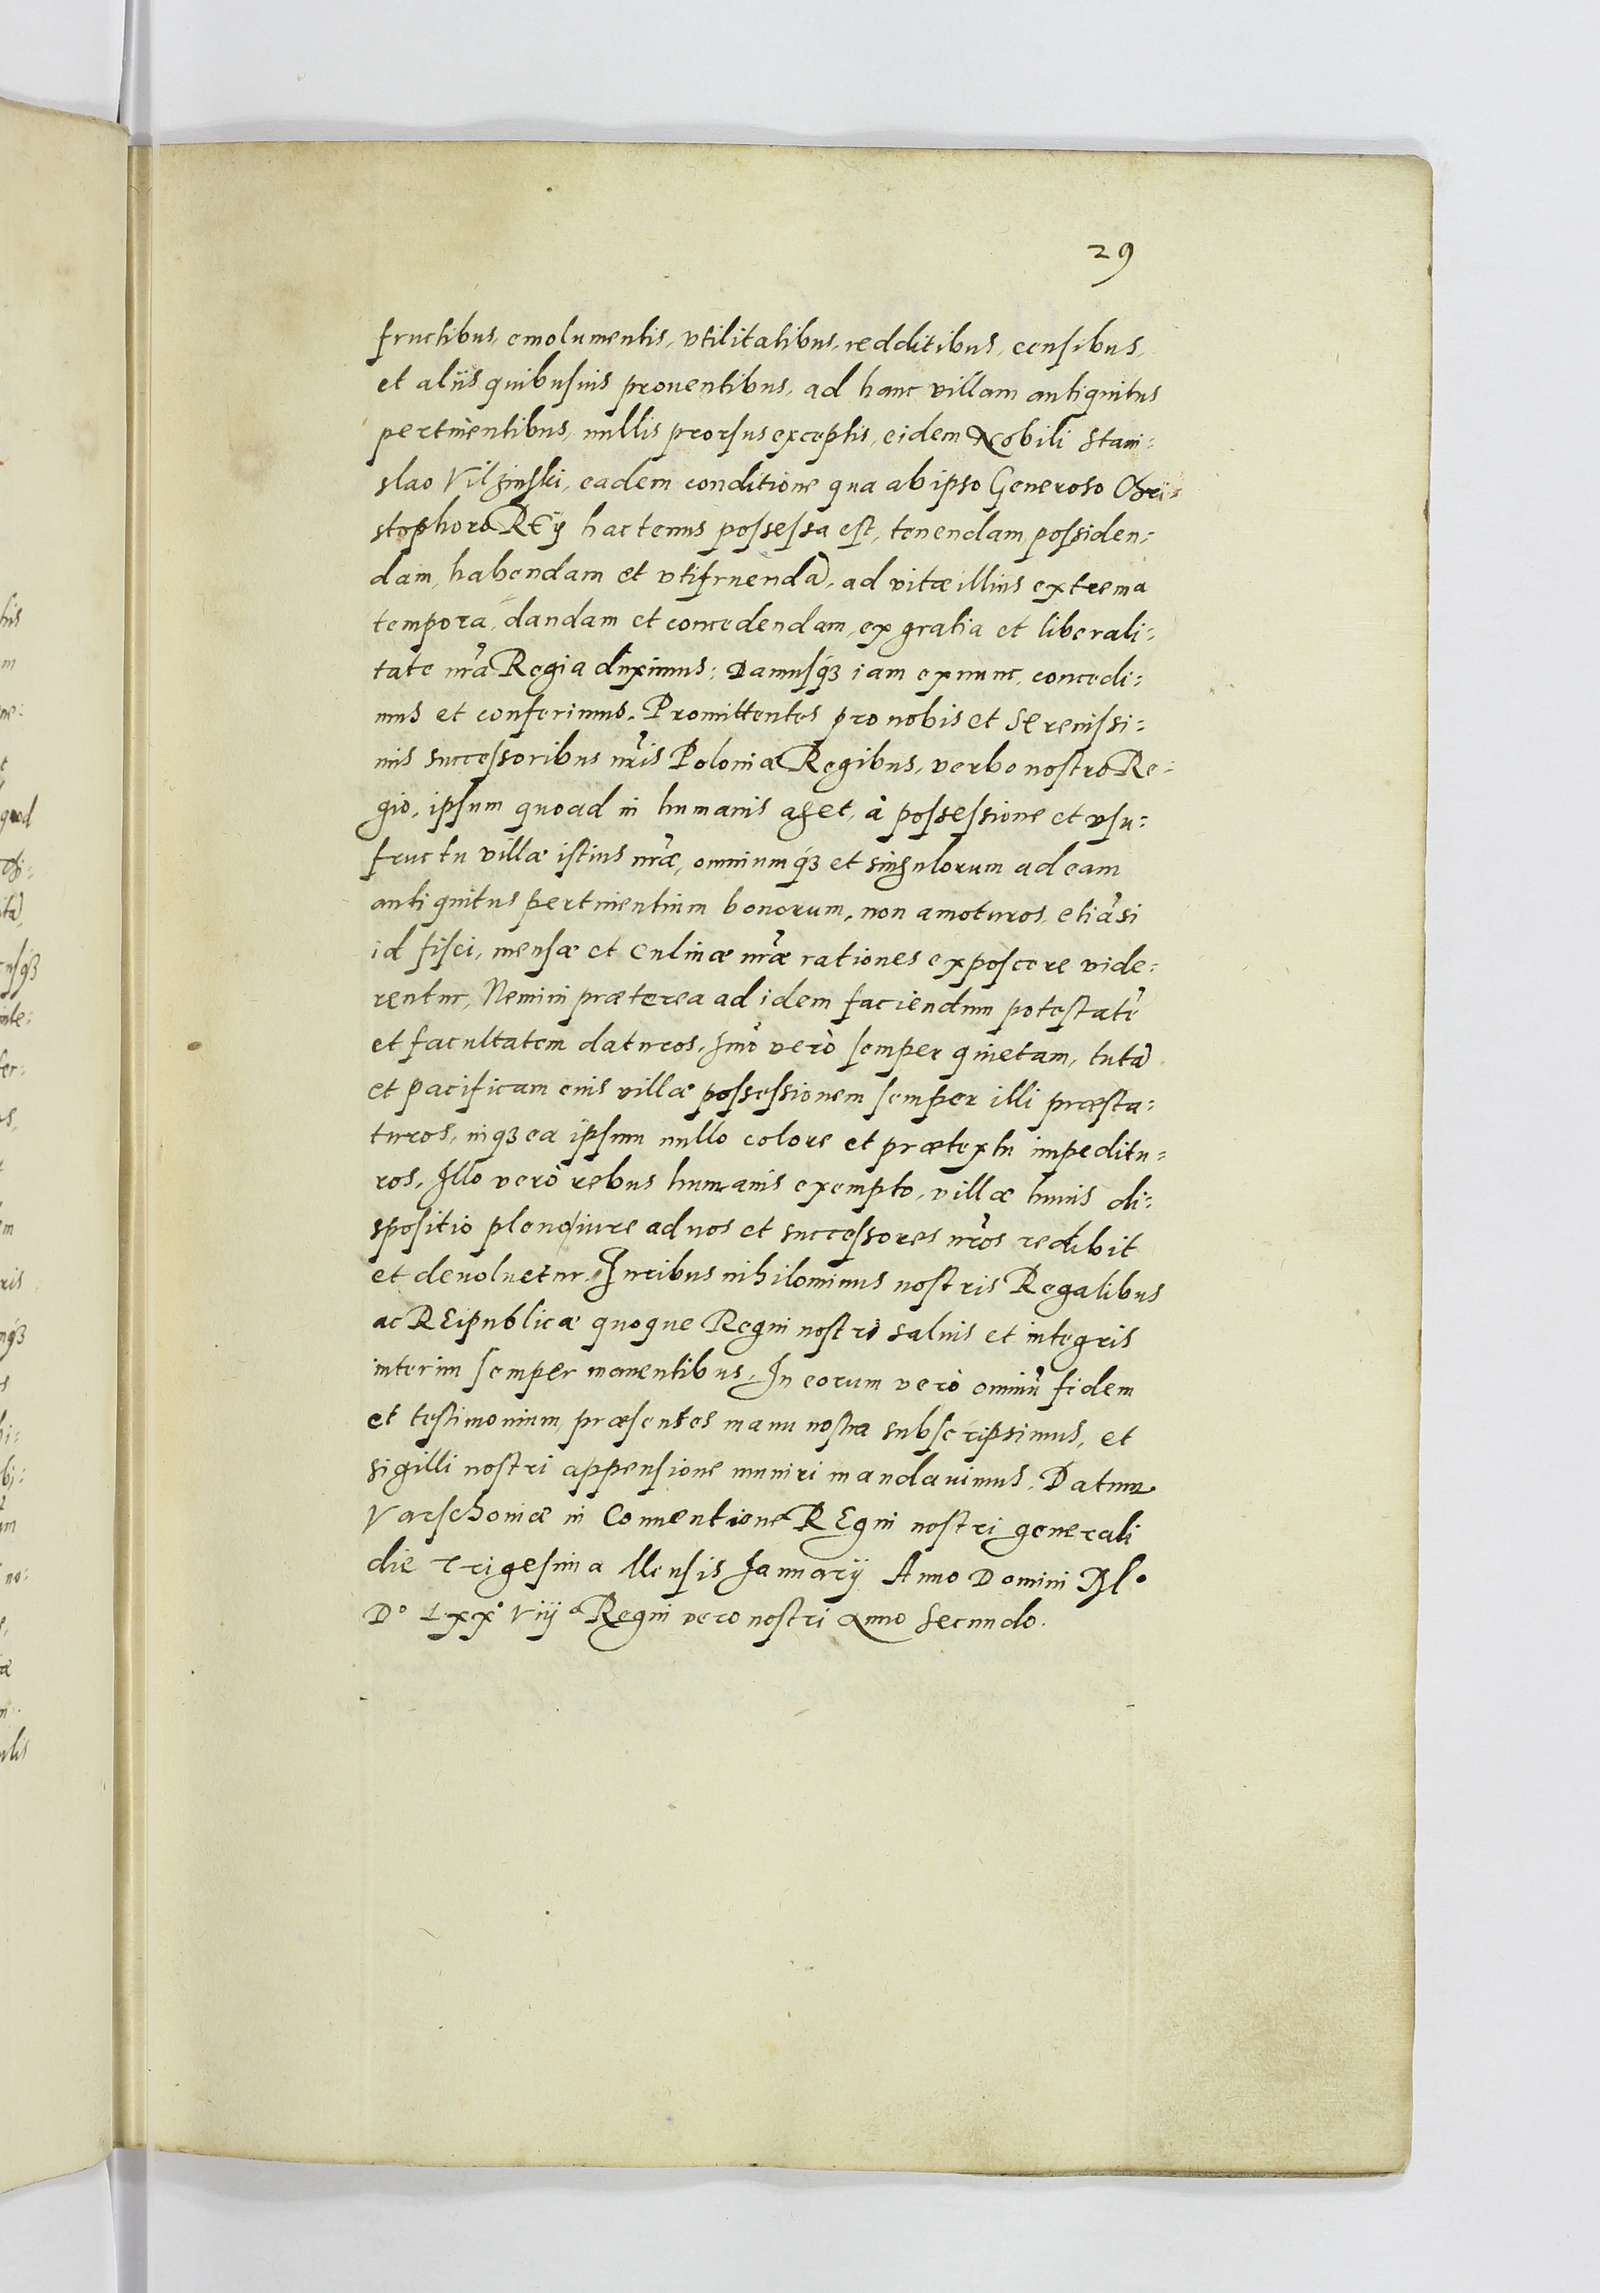 29
fructibus, emolumentis, vtilitatibus, redditibus, censibus,
et aliis quibusuis prouentibus, ad hanc villam antiquitus
pertinentibus, nullis prorsus exceptis, eidem Nobili Stani:
slao Vilzinski, eadem conditione qua ab ipso Generoso Chri:
stophoro REÿ hactenus possessa est, tenendam possiden:
dam, habendam et vtifruendã, ad vitæ illius extrema
tempora, dandam et concedendam, ex gratia et liberali:
tate nrã Regia duximus: Damusqȝ iam ex nunc, concedi:
mus et conferimus. Promittentes pro nobis et Serenissi:
mis successoribus nr̃is Poloniæ Regibus, verbo nostro Re:
gio, ipsum quoad in humanis aget, à possessione et vsu:
fructu villæ istius nr̃æ, omniumqȝ et singulorum ad eam
antiquitus pertinentium bonorum, non amoturos, etiãsi
id fisci, mensæ et culinæ nr̃æ rationes exposcere vide:
rentur, Nemini præterea ad idem faciendum potestatẽ
et facultatem daturos. Imò verò semper quietam, tutã
et pacificam eius villæ possessionem semper illi præsta:
turos, inqȝ ea ipsum nullo colore et prætextu impeditu:
ros. Illo verò rebus humanis exempto, villæ huius di:
spositio pleno iure ad nos et successores nr̃os redibit
et deuoluetur. Iuribus nihilominus nostris Regalibus
ac REipublicæ quoque Regni nostri saluis et integris
interim semper manentibus. In eorum verò omniũ fidem
et testimonium, præsentes manu nostra subscripsimus, et
sigilli nostri appensione muniri mandauimus. Datum
Varschouiæ in Conuentione REgni nostri generali
die Trigesima Mensis Januarÿ Anno Domini Mº
Dº Lxxº Viijº Regni vero nostri Anno Secundo.